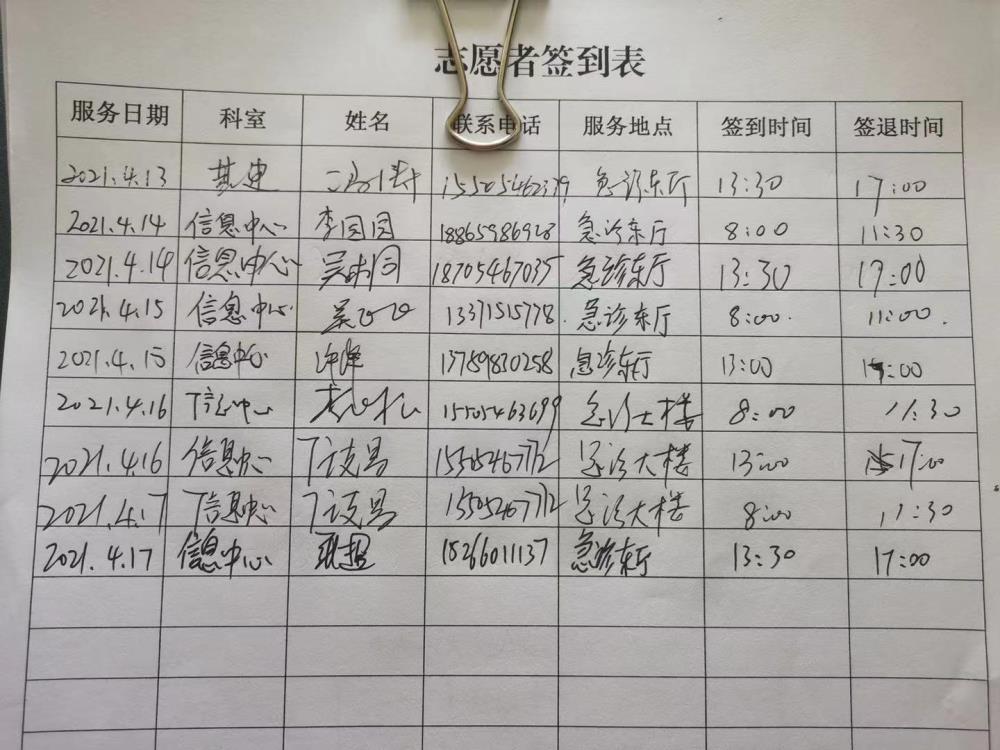 志愿者签到表
服务日期 科室 姓名 联系电话 服务地点 签到时间 签退时间
2021.4.13 基建 急诊东厅 13:30 17:00
2021.4.14 信息中心 李园园 18865986928 急诊东厅 8:00 11:30
2021.4.14 信息中心 18705467035 急诊东厅 13:30 17:00
2021.4.15 信息中心 13371515778 急诊东厅 8:00 11:00
2021.4.15 信息中心 13789830258 急诊东厅 13:00 :00
2021.4.16 信息中心 15505463699 急诊大楼 8:00 11:30
2021.4.16 信息中心 急诊大楼 13:00 17:00
2021.4.17 信息中心 急诊大楼 8:00 11:30
2021.4.17 信息中心 18266011137 急诊东厅 13:30 17:00